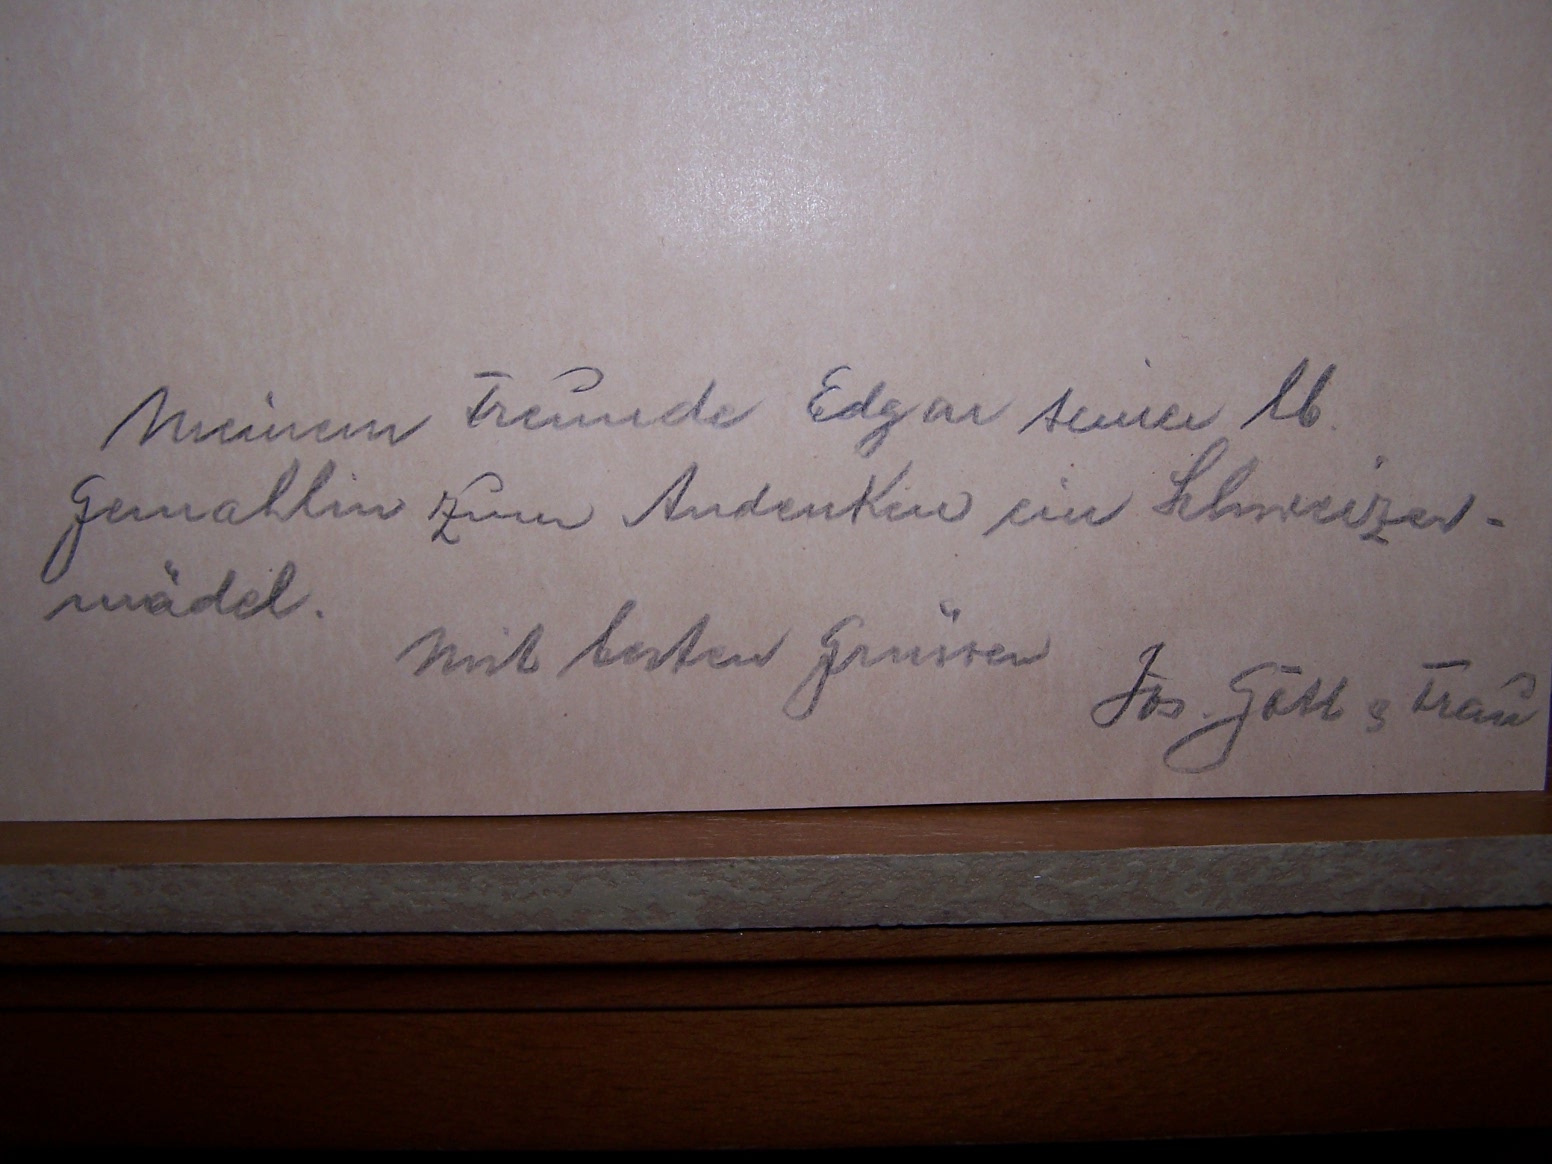 Meinem Freunde Edgar seiner lb.
Gemahlin zum Andenken ein Schweizer-
mädel.
Mit besten Grüssen
Jos. Göttl & Frau